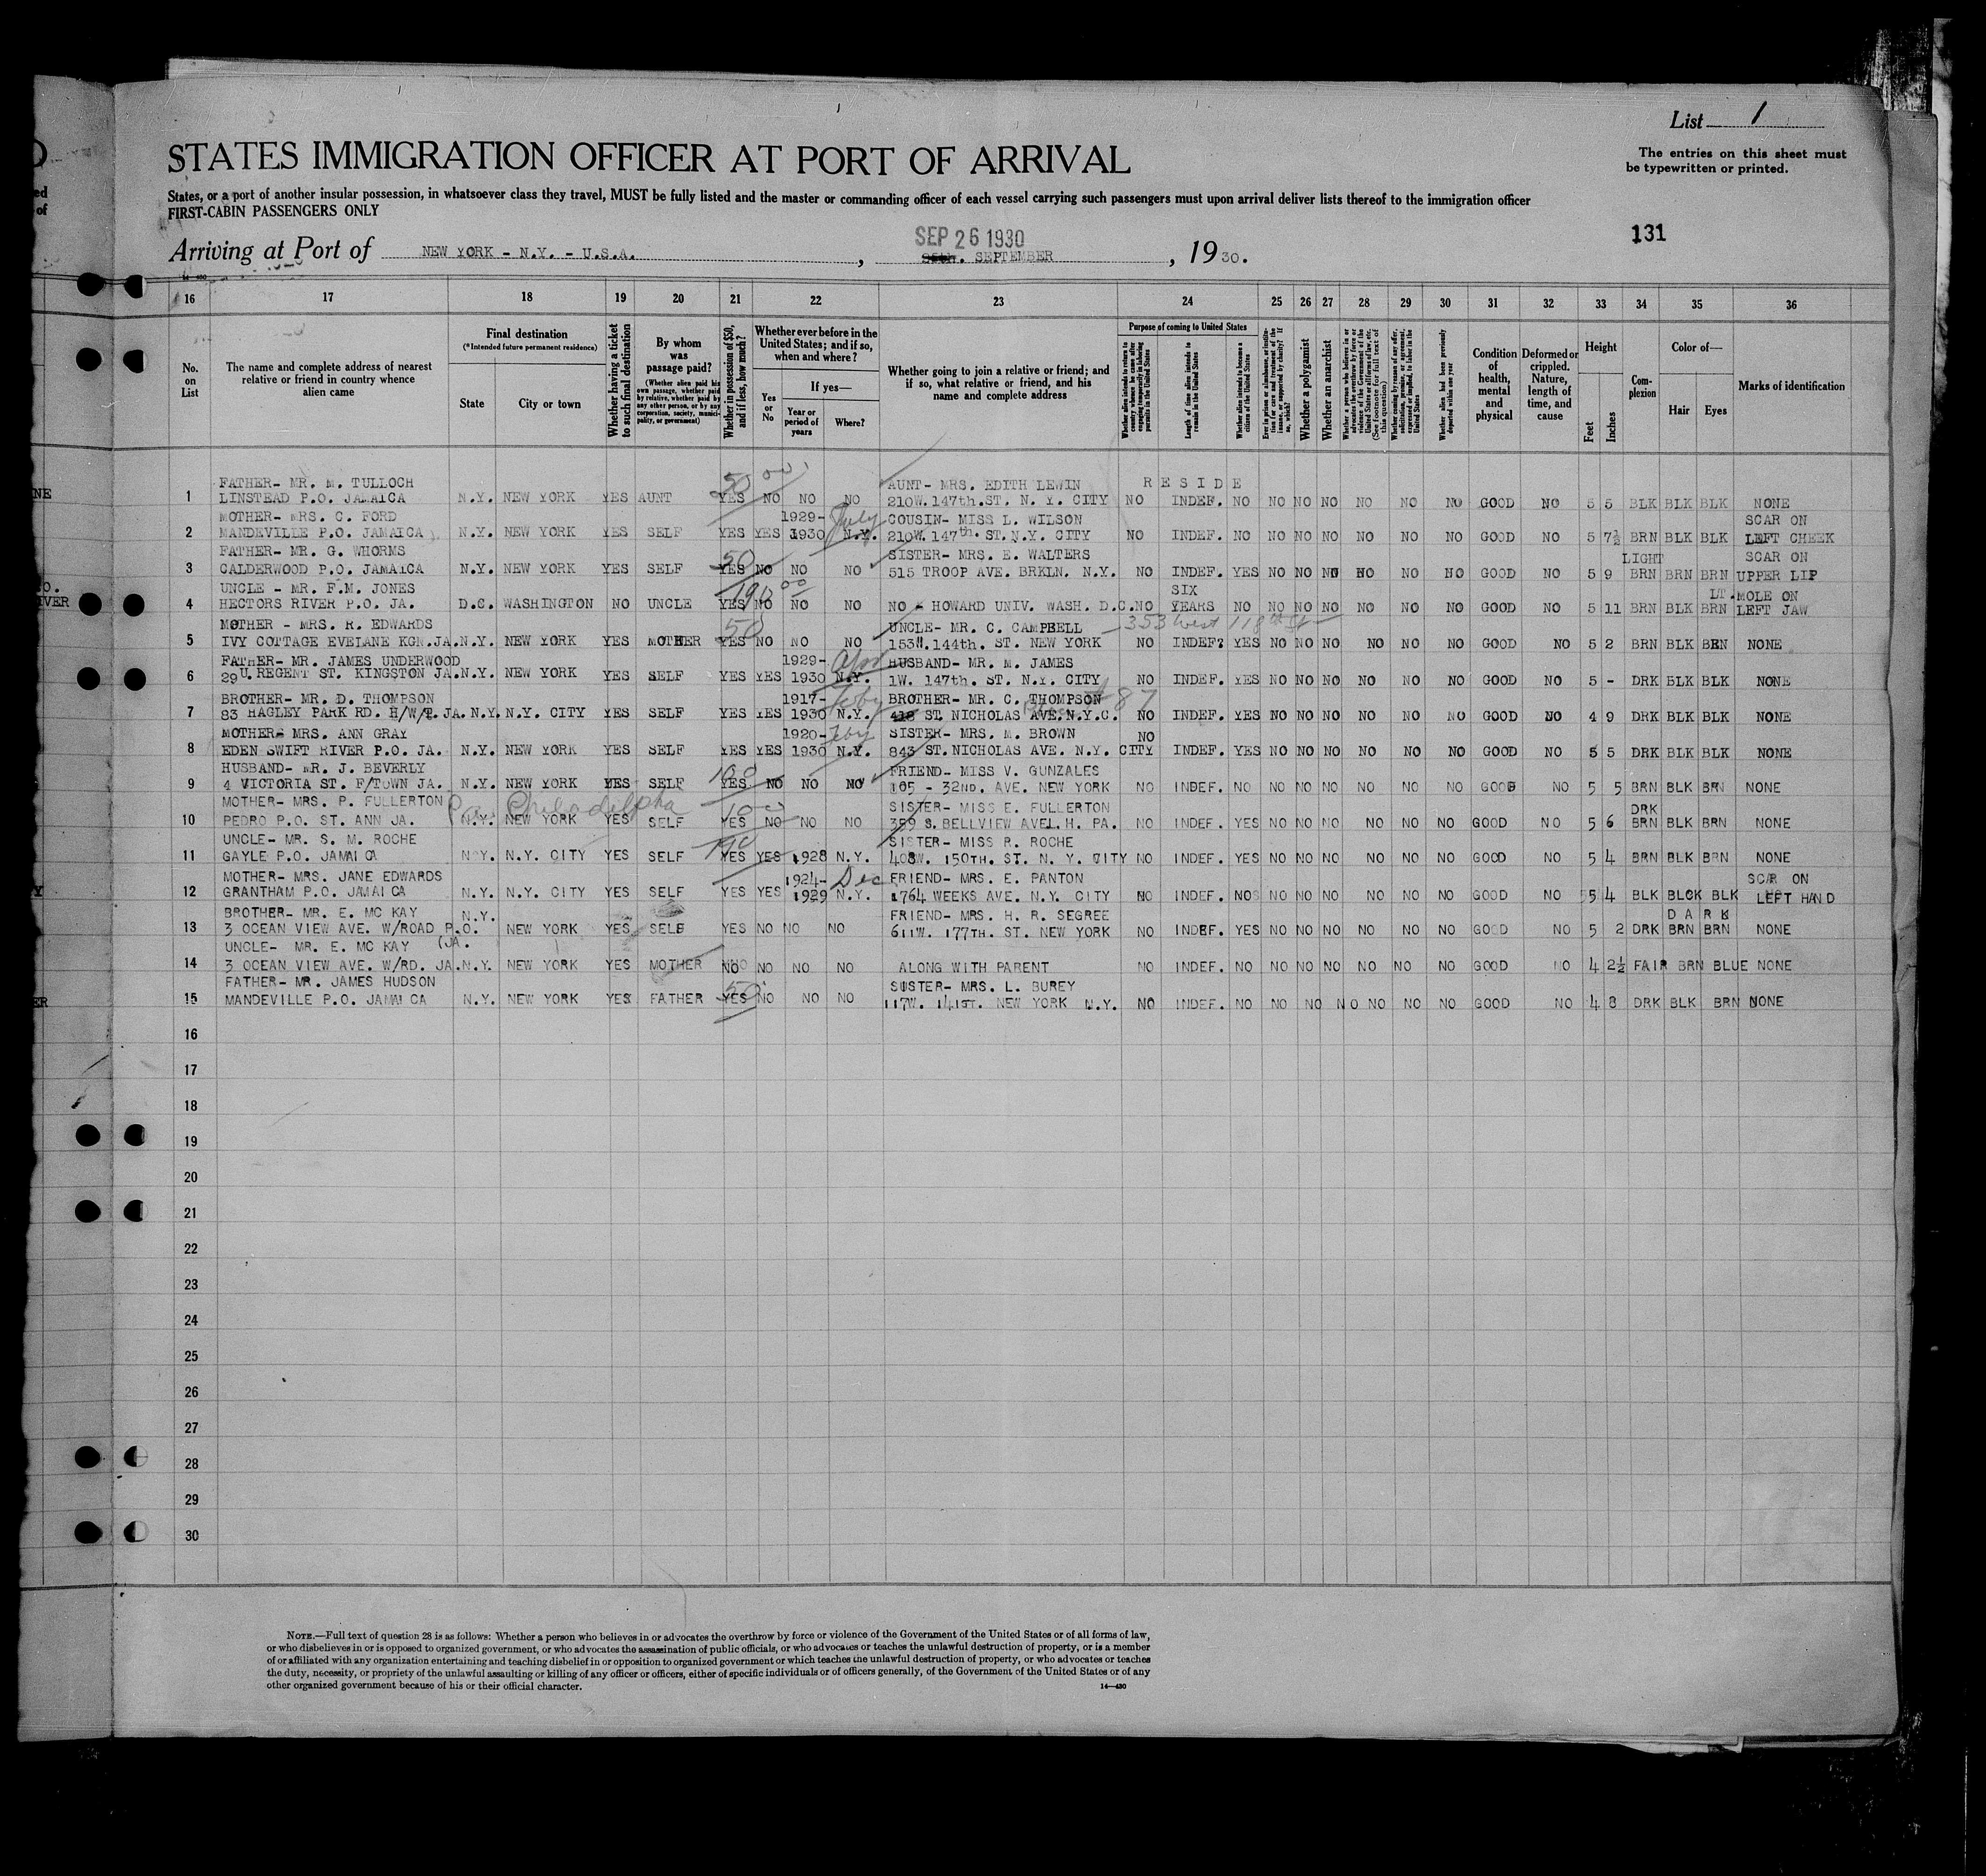 List 1
The entries on this sheet must
be typewritten or printed.
STATES IMMIGRATION OFFICER AT PORT OF ARRIVAL
States, or a port of another insular possession, in whatsoever class they travel, MUST be fully listed and the master or commanding officer of each vessel carrying such passengers must upon arrival deliver lists thereof to the immigration officer
FIRST-CABIN PASSENGERS ONLY
131
SEP 26 1930
Arriving at Port of NEW YORK - N.Y. - U.S.A. , SEPTEMBER , 1930.
16 17 18 19 20 21 22 23 24 25 26 27 28 29 30 31 32 33 34 35 36
No. on List
The name and complete address of nearest relative or friend in country whence alien came
Final destination
(*Intended future permanent residence)
State
City or town
Whether having a ticket to such final destination
By whom was passage paid?
(Whether alien paid his own passage, whether paid by relative, whether paid by any other person, or by any corporation, society, municipality, or government)
Whether in possession of $50, and if less, how much?
Whether ever before in the United States; and if so, when and where?
Yes or No
If yes—
Year or period of years
Where?
Whether going to join a relative or friend; and if so, what relative or friend, and his name and complete address
Purpose of coming to United States
Length of time alien intends to remain in the United States
Whether alien intends to become a citizen of the United States
Whether a polygamist
Whether an anarchist
(See footnote for full text of this question)
Whether alien had been previously deported within one year
Condition of health, mental and physical
Deformed or crippled. Nature, length of time, and cause
Height
Feet
Inches
Complexion
Color of—
Hair
Eyes
Marks of identification
FATHER- MR. M. TULLOCH 50 00 AUNT- MRS. EDITH LEWIN R E S I D E
1 LINSTEAD P.O. JAMAICA N.Y. NEW YORK YES AUNT YES NO NO NO 210W. 147th. ST. N. Y. CITY NO INDEF. NO NO NO NO NO NO NO GOOD NO 5 5 BLK BLK BLK NONE
MOTHER- MRS. C. FORD 1929- July COUSIN- MISS L. WILSON SCAR ON
2 MANDEVILLE P.O. JAMAICA N.Y. NEW YORK YES SELF YES YES 1930 N.Y. 210W. 147th. ST. N.Y. CITY NO INDEF. NO NO NO NO NO NO NO GOOD NO 5 7½ BRN BLK BLK LEFT CHEEK
FATHER- MR. G. WHORMS 50 SISTER- MRS. E. WALTERS LIGHT SCAR ON
3 CALDERWOOD P.O. JAMAICA N.Y. NEW YORK YES SELF YES NO NO NO 515 TROOP AVE. BRKLN. N.Y. NO INDEF. YES NO NO NO NO NO NO GOOD NO 5 9 BRN BRN BRN UPPER LIP
UNCLE - MR. F.M. JONES SIX LT. MOLE ON
4 HECTORS RIVER P.O. JA. D.C. WASHINGTON NO UNCLE YES NO NO NO NO - HOWARD UNIV. WASH. D.C. NO YEARS NO NO NO NO NO NO NO GOOD NO 5 11 BRN BLK BRN LEFT JAW
MOTHER - MRS. R. EDWARDS 50 UNCLE- MR. C. CAMPBELL 353 West 118th St
5 IVY COTTAGE EVELANE KGN. JA. N.Y. NEW YORK YES MOTHER YES NO NO NO 153W. 144th. ST. NEW YORK NO INDEF? YES NO NO NO NO NO NO GOOD NO 5 2 BRN BLK BRN NONE
FATHER- MR. JAMES UNDERWOOD 1929- HUSBAND- MR. M. JAMES
6 29 U. REGENT ST. KINGSTON JA. N.Y. NEW YORK YES SELF YES YES 1930 N.Y. 1W. 147th. ST. N.Y. CITY NO INDEF. YES NO NO NO NO NO NO GOOD NO 5 - DRK BLK BLK NONE
BROTHER- MR. D. THOMPSON 1917- Feby BROTHER- MR. C. THOMPSON 87
7 83 HAGLEY PARK RD. H/W/T. JA. N.Y. N.Y. CITY YES SELF YES YES 1930 N.Y. ST. NICHOLAS AVE. N.Y.C. NO INDEF. YES NO NO NO NO NO NO GOOD NO 4 9 DRK BLK BLK NONE
MOTHER- MRS. ANN GRAY 1920- Feby SISTER- MRS. M. BROWN NO
8 EDEN SWIFT RIVER P.O. JA. N.Y. NEW YORK YES SELF YES YES 1930 N.Y. 843 ST. NICHOLAS AVE. N.Y. CITY INDEF. YES NO NO NO NO NO NO GOOD NO 5 5 DRK BLK BLK NONE
HUSBAND- MR. J. BEVERLY 100 FRIEND- MISS V. GUNZALES
9 4 VICTORIA ST. F/TOWN JA. N.Y. NEW YORK YES SELF YES NO NO NO 105 - 32ND. AVE. NEW YORK NO INDEF. NO NO NO NO NO NO NO GOOD NO 5 5 BRN BLK BRN NONE
MOTHER- MRS. P. FULLERTON Pa. Philadelpha 100 SISTER- MISS E. FULLERTON DRK
10 PEDRO P.O. ST. ANN JA. N.Y. NEW YORK YES SELF YES NO NO NO 359 S. BELLVIEW AVE. L. H. PA. NO INDEF. YES NO NO NO NO NO NO GOOD NO 5 6 BRN BLK BRN NONE
UNCLE- MR. S. M. ROCHE SISTER- MISS R. ROCHE
11 GAYLE P.O. JAMAICA N.Y. N.Y. CITY YES SELF YES YES 1928 N.Y. 408W. 150TH. ST. N. Y. CITY NO INDEF. YES NO NO NO NO NO NO GOOD NO 5 4 BRN BLK BRN NONE
MOTHER- MRS. JANE EDWARDS 1924- Dec FRIEND- MRS. E. PANTON SCAR ON
12 GRANTHAM P.O. JAMAICA N.Y. N.Y. CITY YES SELF YES YES 1929 N.Y. 1764 WEEKS AVE. N.Y. CITY NO INDEF. NO NO NO NO NO NO NO GOOD NO 5 4 BLK BLCK BLK LEFT HAND
BROTHER- MR. E. MC KAY N.Y. FRIEND- MRS. H. R. SEGREE D A R K
13 3 OCEAN VIEW AVE. W/ROAD P.O. NEW YORK YES SELF YES NO NO NO 611W. 177TH. ST. NEW YORK NO INDEF. YES NO NO NO NO NO NO GOOD NO 5 2 DRK BRN BRN NONE
UNCLE- MR. E. MC KAY (JA.
14 3 OCEAN VIEW AVE. W/RD. JA. N.Y. NEW YORK YES MOTHER NO NO NO NO ALONG WITH PARENT NO INDEF. NO NO NO NO NO NO NO GOOD NO 4 2½ FAIR BRN BLUE NONE
FATHER- MR. JAMES HUDSON 50 SUSTER- MRS. L. BUREY
15 MANDEVILLE P.O. JAMAICA N.Y. NEW YORK YES FATHER YES NO NO NO 117W. 141ST. NEW YORK N.Y. NO INDEF. NO NO NO NO NO NO NO GOOD NO 4 8 DRK BLK BRN NONE
16
17
18
19
20
21
22
23
24
25
26
27
28
29
30
NOTE.—Full text of question 28 is as follows: Whether a person who believes in or advocates the overthrow by force or violence of the Government of the United States or of all forms of law,
or who disbelieves in or is opposed to organized government, or who advocates the assassination of public officials, or who advocates or teaches the unlawful destruction of property, or is a member
of or affiliated with any organization entertaining and teaching disbelief in or opposition to organized government or which teaches the unlawful destruction of property, or who advocates or teaches
the duty, necessity, or propriety of the unlawful assaulting or killing of any officer or officers, either of specific individuals or of officers generally, of the Government of the United States or of any
other organized government because of his or their official character.
14—430